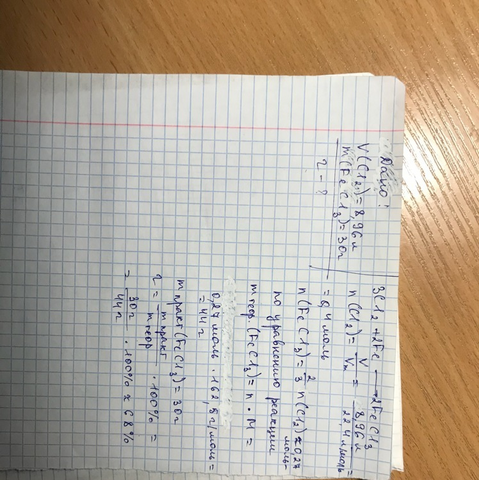 Дано:
V(Cl2)=8,96л
m(FeCl3)=30г
η - ?
3Cl2+2Fe→2FeCl3
n(Cl2)= V/Vm = 8,96л/22,4л/моль =
= 0,4 моль
n(FeCl3)= 2/3 n(Cl2)≈0,27
моль -
по уравнению реакции
m теор. (FeCl3)= n · M =
0,27 моль · 162,5г/моль=
= 44г
m практ (FeCl3)=30г
η = m практ/m теор · 100% =
= 30г/44г · 100% ≈ 68%